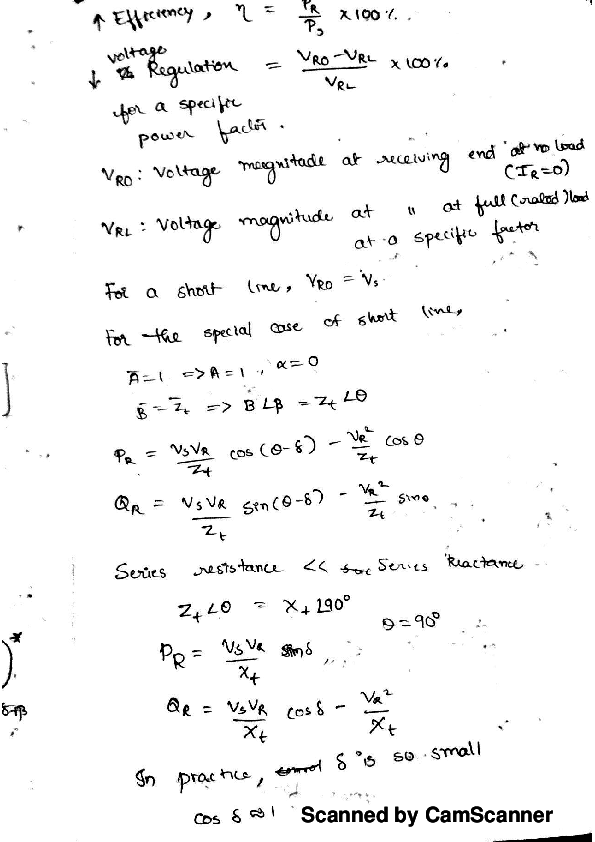 ↑ Efficiency, η = PR/Ps × 100 %.
↓ voltage Regulation = (VRO - VRL)/VRL × 100 %
for a specific
power factor.
VRO : Voltage magnitude at receiving end at no load
(IR=0)
VRL : Voltage magnitude at " at full (rated) load
at a specific factor
For a short line, VRO = Vs.
For the special case of short line,
Ā=1 => A=1, α=0
B̄ = Z̄t => B∠β = Zt∠θ
PR = VsVR/Zt cos(θ-δ) - VR²/Zt cos θ
QR = VsVR/Zt sin(θ-δ) - VR²/Zt sinθ
Series resistance << Series Reactance
Zt∠θ = Xt∠90° θ=90°
)*
PR = VsVR/Xt sinδ
δ-β
QR = VsVR/Xt cosδ - VR²/Xt
In practice, δ is so small
cos δ ≈ 1
Scanned by CamScanner